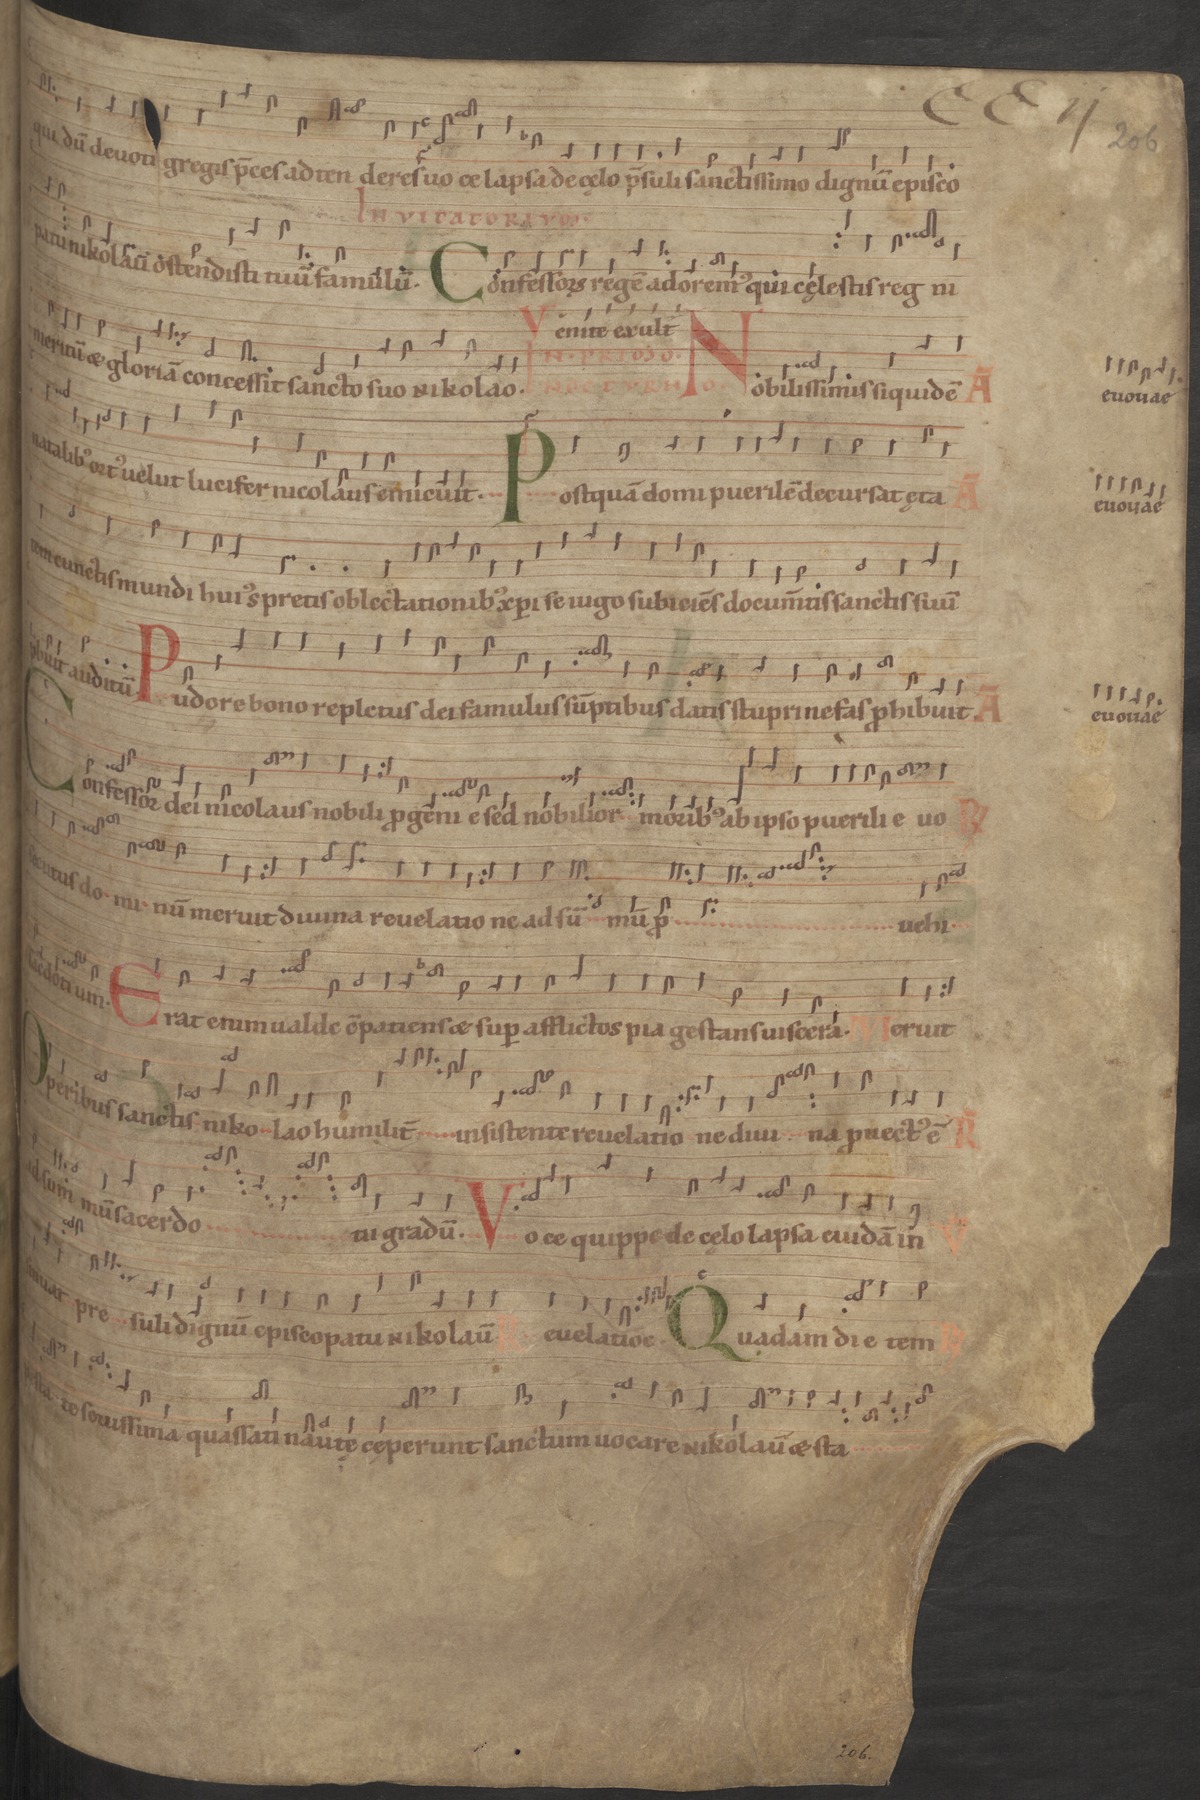 CC ij
206
qui dũ deuoti gregis p̃ces adten deres uo ce lapsa de cęlo p̃suli sanctissimo dignũ episco
INVITATORIVM.
patu nikolaũ ostendisti tuũ famulũ. Confessorũ regẽ adorem⁹ qui cęlestis reg ni
Venite exult
meritũ & gloriã concessit sancto suo nikolao. IN PRIMO NOCTURNO. Nobilissimis siquidẽ Ã euouae
natalib⁹ ort⁹ uelut lucifer nicolaus emicuit. Postquã domi puerilẽ decursat ęta Ã euouae
tem cunctis mundi hui⁹ spretis oblectationib⁹ xp̃i se iugo subiciẽs documẽtis sanctis suũ
p̃buit auditũ. Pudore bono repletus dei famulus sũptibus datis stupri nefas p̃hibuit. Ã euouae
Confessor dei nicolaus nobilis p̃geni e sed nobilior morib⁹ ab ipso puerili e uo R
secutus do mi nũ meruit diuina reuelatio ne ad sũ mũ p̃ uehi
sacdoti um. Erat enim ualde cõpatiens & sup afflictos pia gestans uiscera. Meruit
Operibus sanctis niko lao humilit̃ insistente reuelatio ne diui na puect⁹ ẽ R
ad sum mũ sacerdo tii gradũ. Voce quippe de cęlo lapsa cuidã in V
sinuat pre suli dignũ episcopatu nikolaũ R euelatiõe Quadam di e tem R
pesta te seuissima quassati nautę ceperunt sanctum uocare nikolaũ & sta
206.